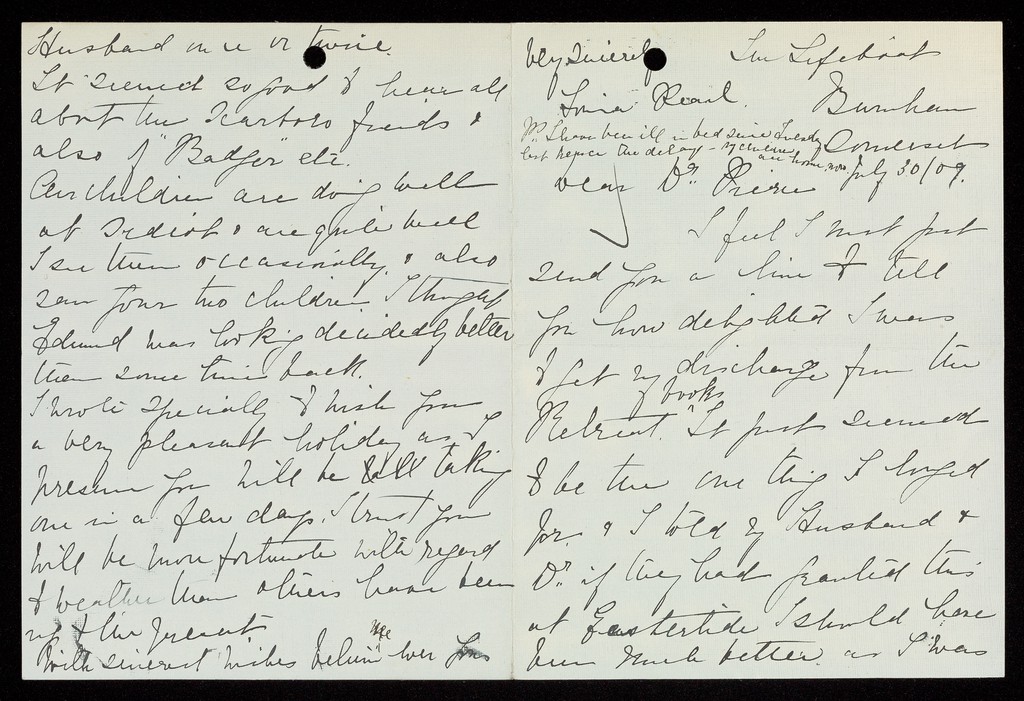 Husband once or twice.
It seemed so good to hear all
about the Scarboro friends &
also of "Badger" etc.
Our children are doing well
at & are quite well
I see them occasionally, & also
saw your two children I thought
Edmund was looking decidedly better
than some time back.
I wrote specially to wish you
a very pleasant holiday as I
presume you will be taking
one in a few days. I trust you
will be more fortunate with regard
to weather than others have been
up to the present.
With sincerest wishes believe me ever yours
very sincerely
Pearl.
The Lifeboat
Burnham
Somerset
July 30/09.
P.S. I have been ill in bed since Tuesday
last hence the delay - my children
are home now.
Dear Dr. Pierce
I feel I must just
send you a line to tell
you how delighted I was
to get my discharge from the
of books
Retreat. It just seemed
to be the one thing I longed
for. & I told my Husband &
Dr. if they had granted this
at Eastertide I should have
been much better. as I was